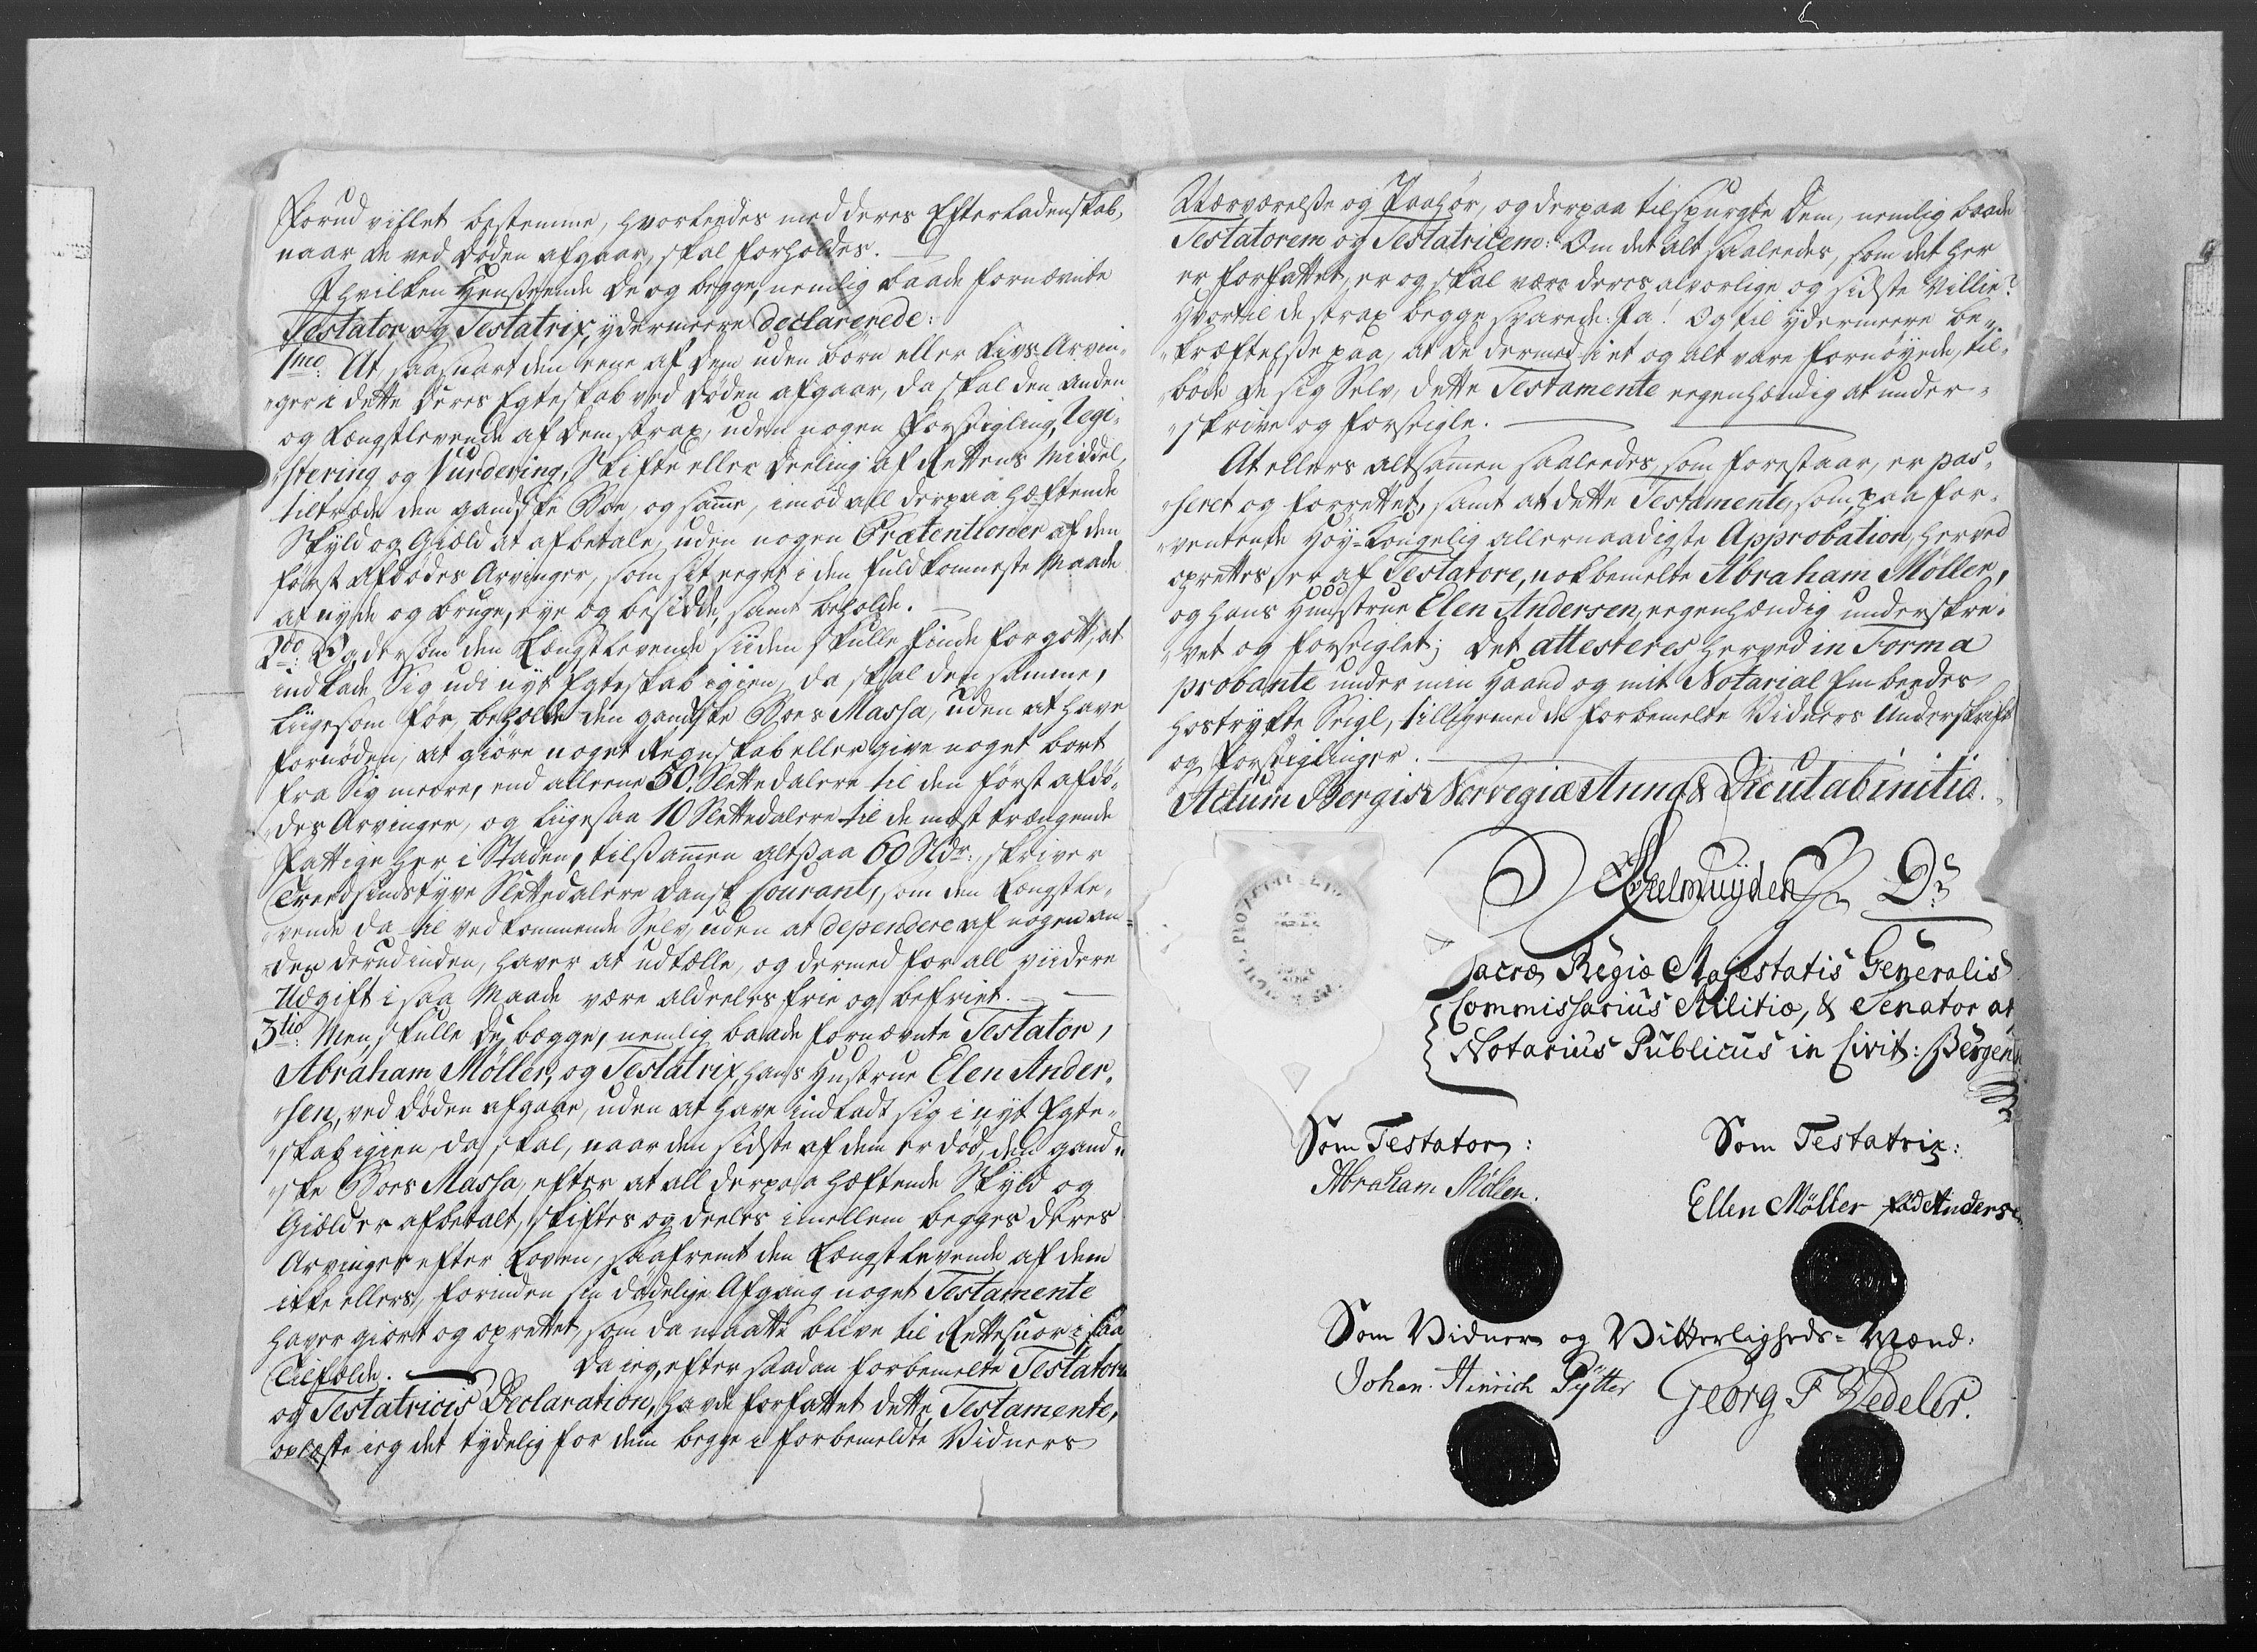 forud villet bestemme, hvorledes med deres Efterladenskab,
naar de ved Døden afgaar, skal forholdes.
I hvilken Henseende De og begge, nemlig baade fornævnte
Testator og Testatrix, ydermeere declarerede:
1mo: At, saasnart den eene af dem uden børn eller Livs-Arvin-
ger i dette deres Egteskab ved Døden afgaar, da skal den anden
og Længstlevende af dem strax, uden nogen Forsegling, Regi-
stering og Vurdering, Skifte eller Deeling af Rettens Middel,
tiltræde den gandske Boe, og samme, imod all derpaa hæftende
Skyld og Giæld at afbetale, uden nogen Prætentioner af den
først Afdødes Arvinger, som sit eeget i den fuldkomneste Maade
at nyde og bruge, eye og besidde, samt beholde.
2do: Og dersom den Længstlevende siiden skulle finde for gott, at
indlade Sig udi nyt Egteskab igien, da skal den samme,
liigesom før, beholde den gandske Boes Massa, uden at have
fornøden, at giøre noget Regnskab eller give noget bort
fra Sig meere, end alleene 50. Slettedalere til den først afdø-
des Arvinger, og liigesaa 10 Slettedalere til de mæst trængende
Fattige her i Staden, tilsammen altsaa 60 Sldr:, skriver
Tredsindstyve Slettedalere dansk Courant, som den Længstle-
vende da til vedkommende Selv, uden at dependere af nogen an-
den derudinden, haver at udtælle, og dermed for all viidere
Udgift i saa Maade være aldeeles frie og befriet.
3tio: Men, skulle De begge, nemlig baade fornævnte Testator,
Abraham Möller, og Testatrix, hans Hustrue Elen Ander-
sen, ved Døden afgaae, uden at have indladt sig i nyt Egte-
skab igien, da skal, naar den sidste af dem er død, den gand-
ske Boes Massa, efter at all derpaa hæftende Skyld og
Giæld er afbetalt, skiftes og deeles imellem begges deres
Arvinger efter Loven, saafremt den Længstlevende af dem
ikke ellers, forinden sin dødelige Afgang noget Testamente
haver giort og oprettet, som da maatte blive til Rettesnor i saa
Tilfælde. Da ieg, efter saadan forbemelte Testatoris
og Testatricis Declaration, havde forfattet dette Testamente,
oplæste ieg det tydelig for dem begge i forbemeldte Vidners
Nærværelse og Paahør, og derpaa tilspurgte Dem, nemlig baade
Testatorem og Testatricem: Om det alt saaledes, som det her
er forfattet, er og skal være deres alvorlige og sidste Villie?
Hvortil de strax begge svarede: Ja! Og til ydermeere be-
kræftelse paa, at de dermed i et og alt vare fornøyede, til-
bøde de sig Selv, dette Testamente eegenhændig at under-
skrive og forseigle.
At ellers altsammen saaledes, som forestaar, er pas-
seret og forrettet, samt at dette Testamente, som, paa for-
ventende Høy-Kongelig allernaadigste Approbation, herved
oprettes, er af Testatore, nokbemelte Abraham Möller,
og hans Huusstrue Elen Andersen, eegenhændig underskre-
vet og forseiglet; Det attesteres herved in Forma
probante under min Haand og mit Notarial Embedes
hostrykte Seigl, tilligemed de forbemelte Vidners Underskrift
og Forseiglinger.
Actum Bergis Norvegiæ Anno & Die ut ab initio.
Sacræ Regiæ Majestatis Generalis
Commissarius Militiæ, & Senator at
Notarius Publicus in Civit: Bergen:
Som Testator: Som Testatrix:
Abraham Möller. Ellen Möller fød Andersen
Som Vidner og Vitterligheds-Mænd:
Johan Hinrich Pÿtter Georg F Vedeler.